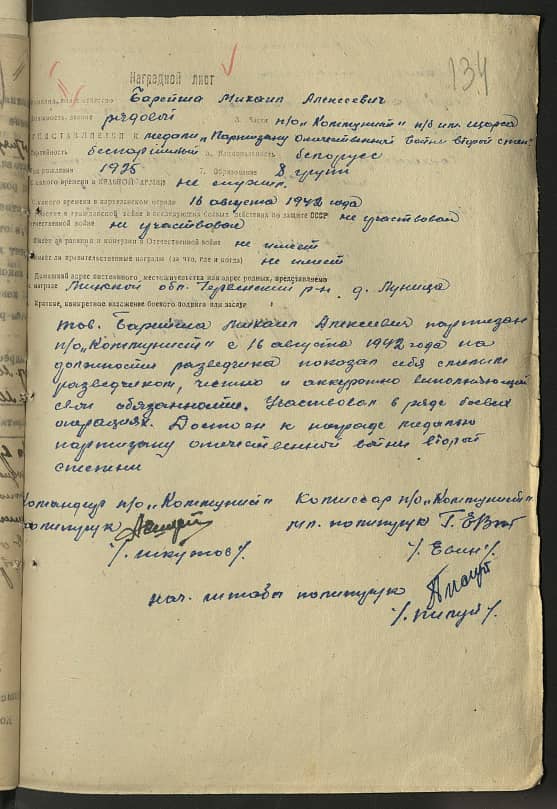 134
Наградной лист
Барейша Михаил Алексеевич
рядовой 3. Части п/о „Коммунист" п/б им. щорса
к медали „Партизану отечественной войны второй степ."
беспартийный Национальность белорусс
рождения 1925 7. Образование 8 групп
какого времени в КРАСНОЙ АРМИИ не служил.
какого времени в партизанском отряде 16 августа 1942 года
в гражданской войне и последующих боевых действиях по защите СССР не участвовал
отечественной войне не участвовал
Имеет ли ранения и контузии в Отечественной войне не имеет
Имеет ли правительственные награды (за что, где и когда) не имеет
Домашний адрес постоянного местожительства или адрес родных, представляемого
к награде Минской обл. р-н. д. Луница
Краткое, конкретное изложение боевого подвига или заслуг
тов. Барейша Михаил Алексеевич партизан
п/о „Коммунист" с 16 августа 1942 года на
должности разведчика показал себя смелым
разведчиком, честно и аккуратно выполняющий
свои обязанности. Участвовал в ряде боевых
операциях. Достоен к награде медалью
партизану отечественной войны второй
степени
Командир п/о „Коммунист" Комиссар п/о „Коммунист"
политрук мл. политрук
/. шкутов /. /. Евин /.
нач. штаба политрук
/. пилуй /.